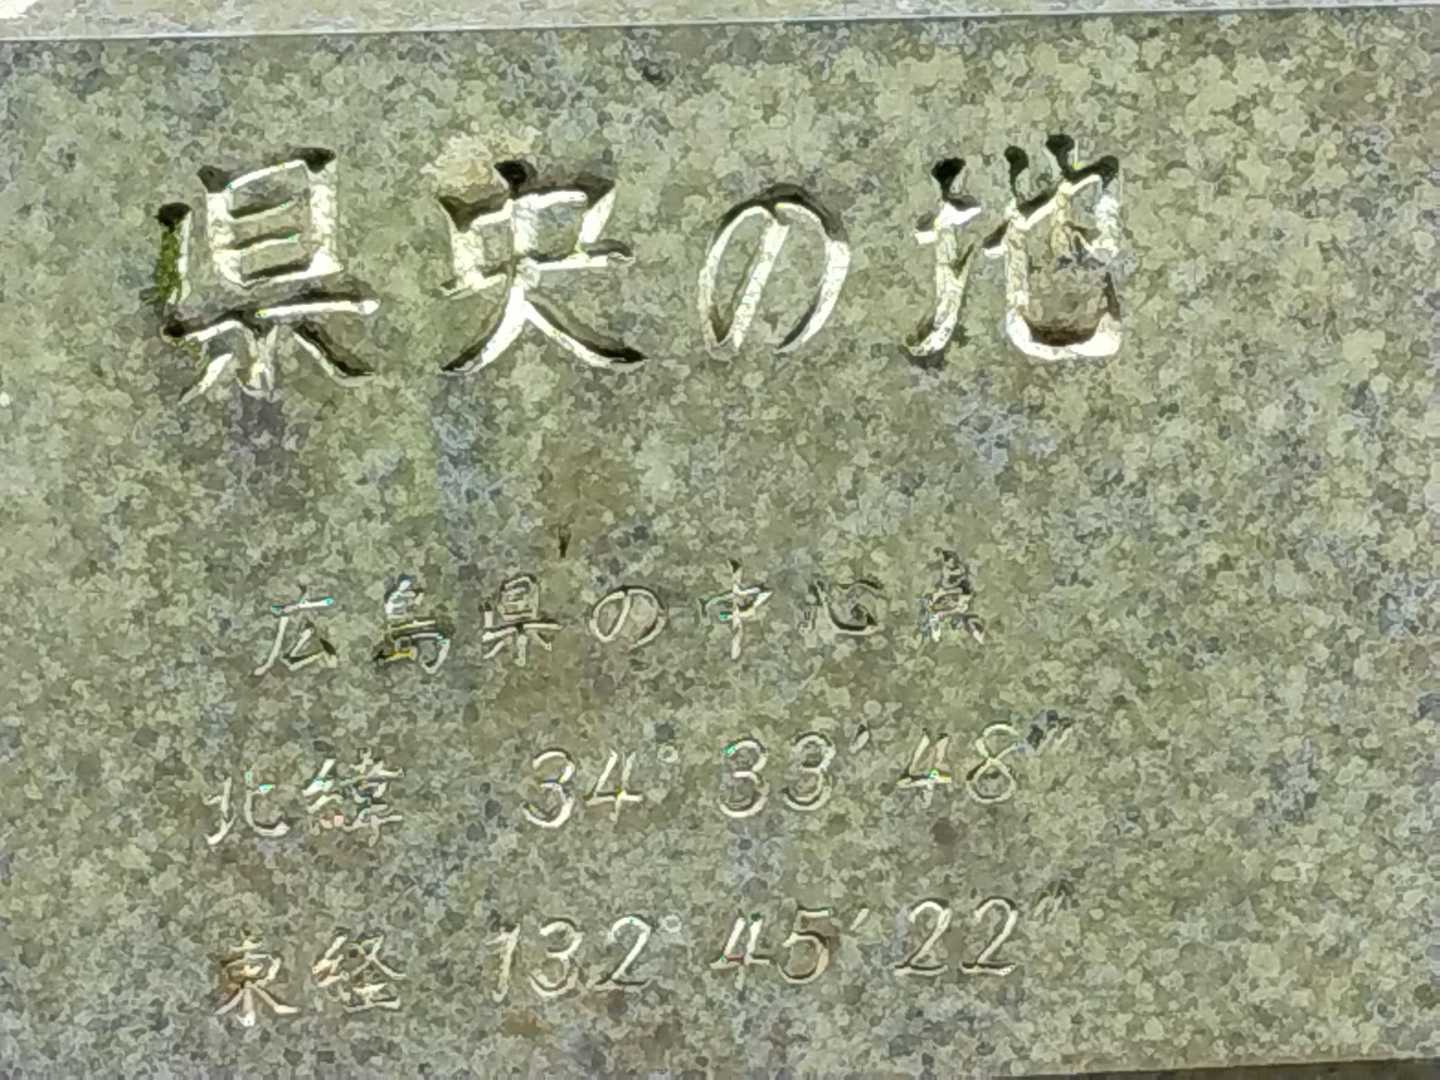 県央の地
広島県の中心点
北緯 34° 33′ 48″
東経 132° 45′ 22″